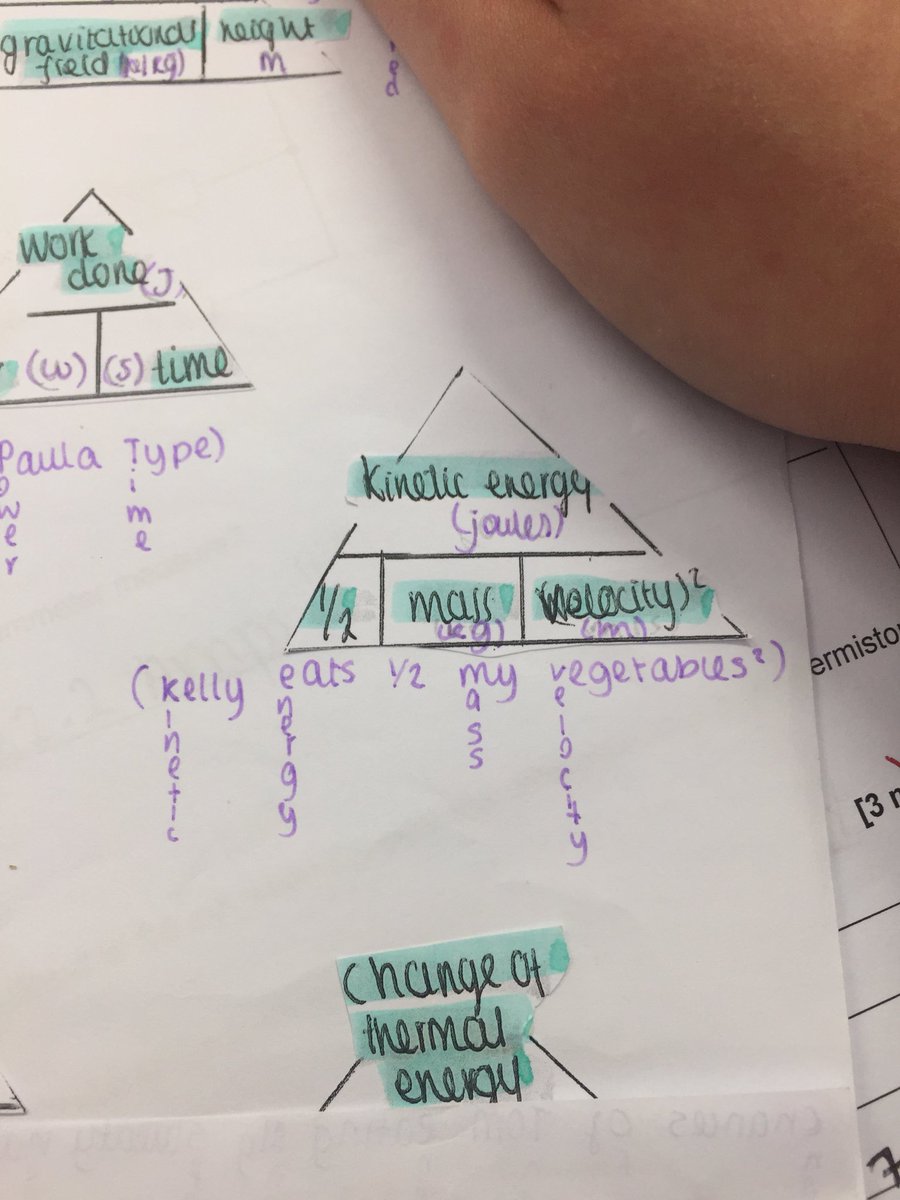 gravitational height
field (N/kg) m
work
done (J)
(w) (s) time
Paula Type)
ower ime
Kinetic energy
(joules)
1/2 mass (velocity)²
(kg) (m)
(Kelly eats 1/2 my vegetables²)
inetic nergy ass elocity
ermistor
[3 m
change of
thermal
energy
7